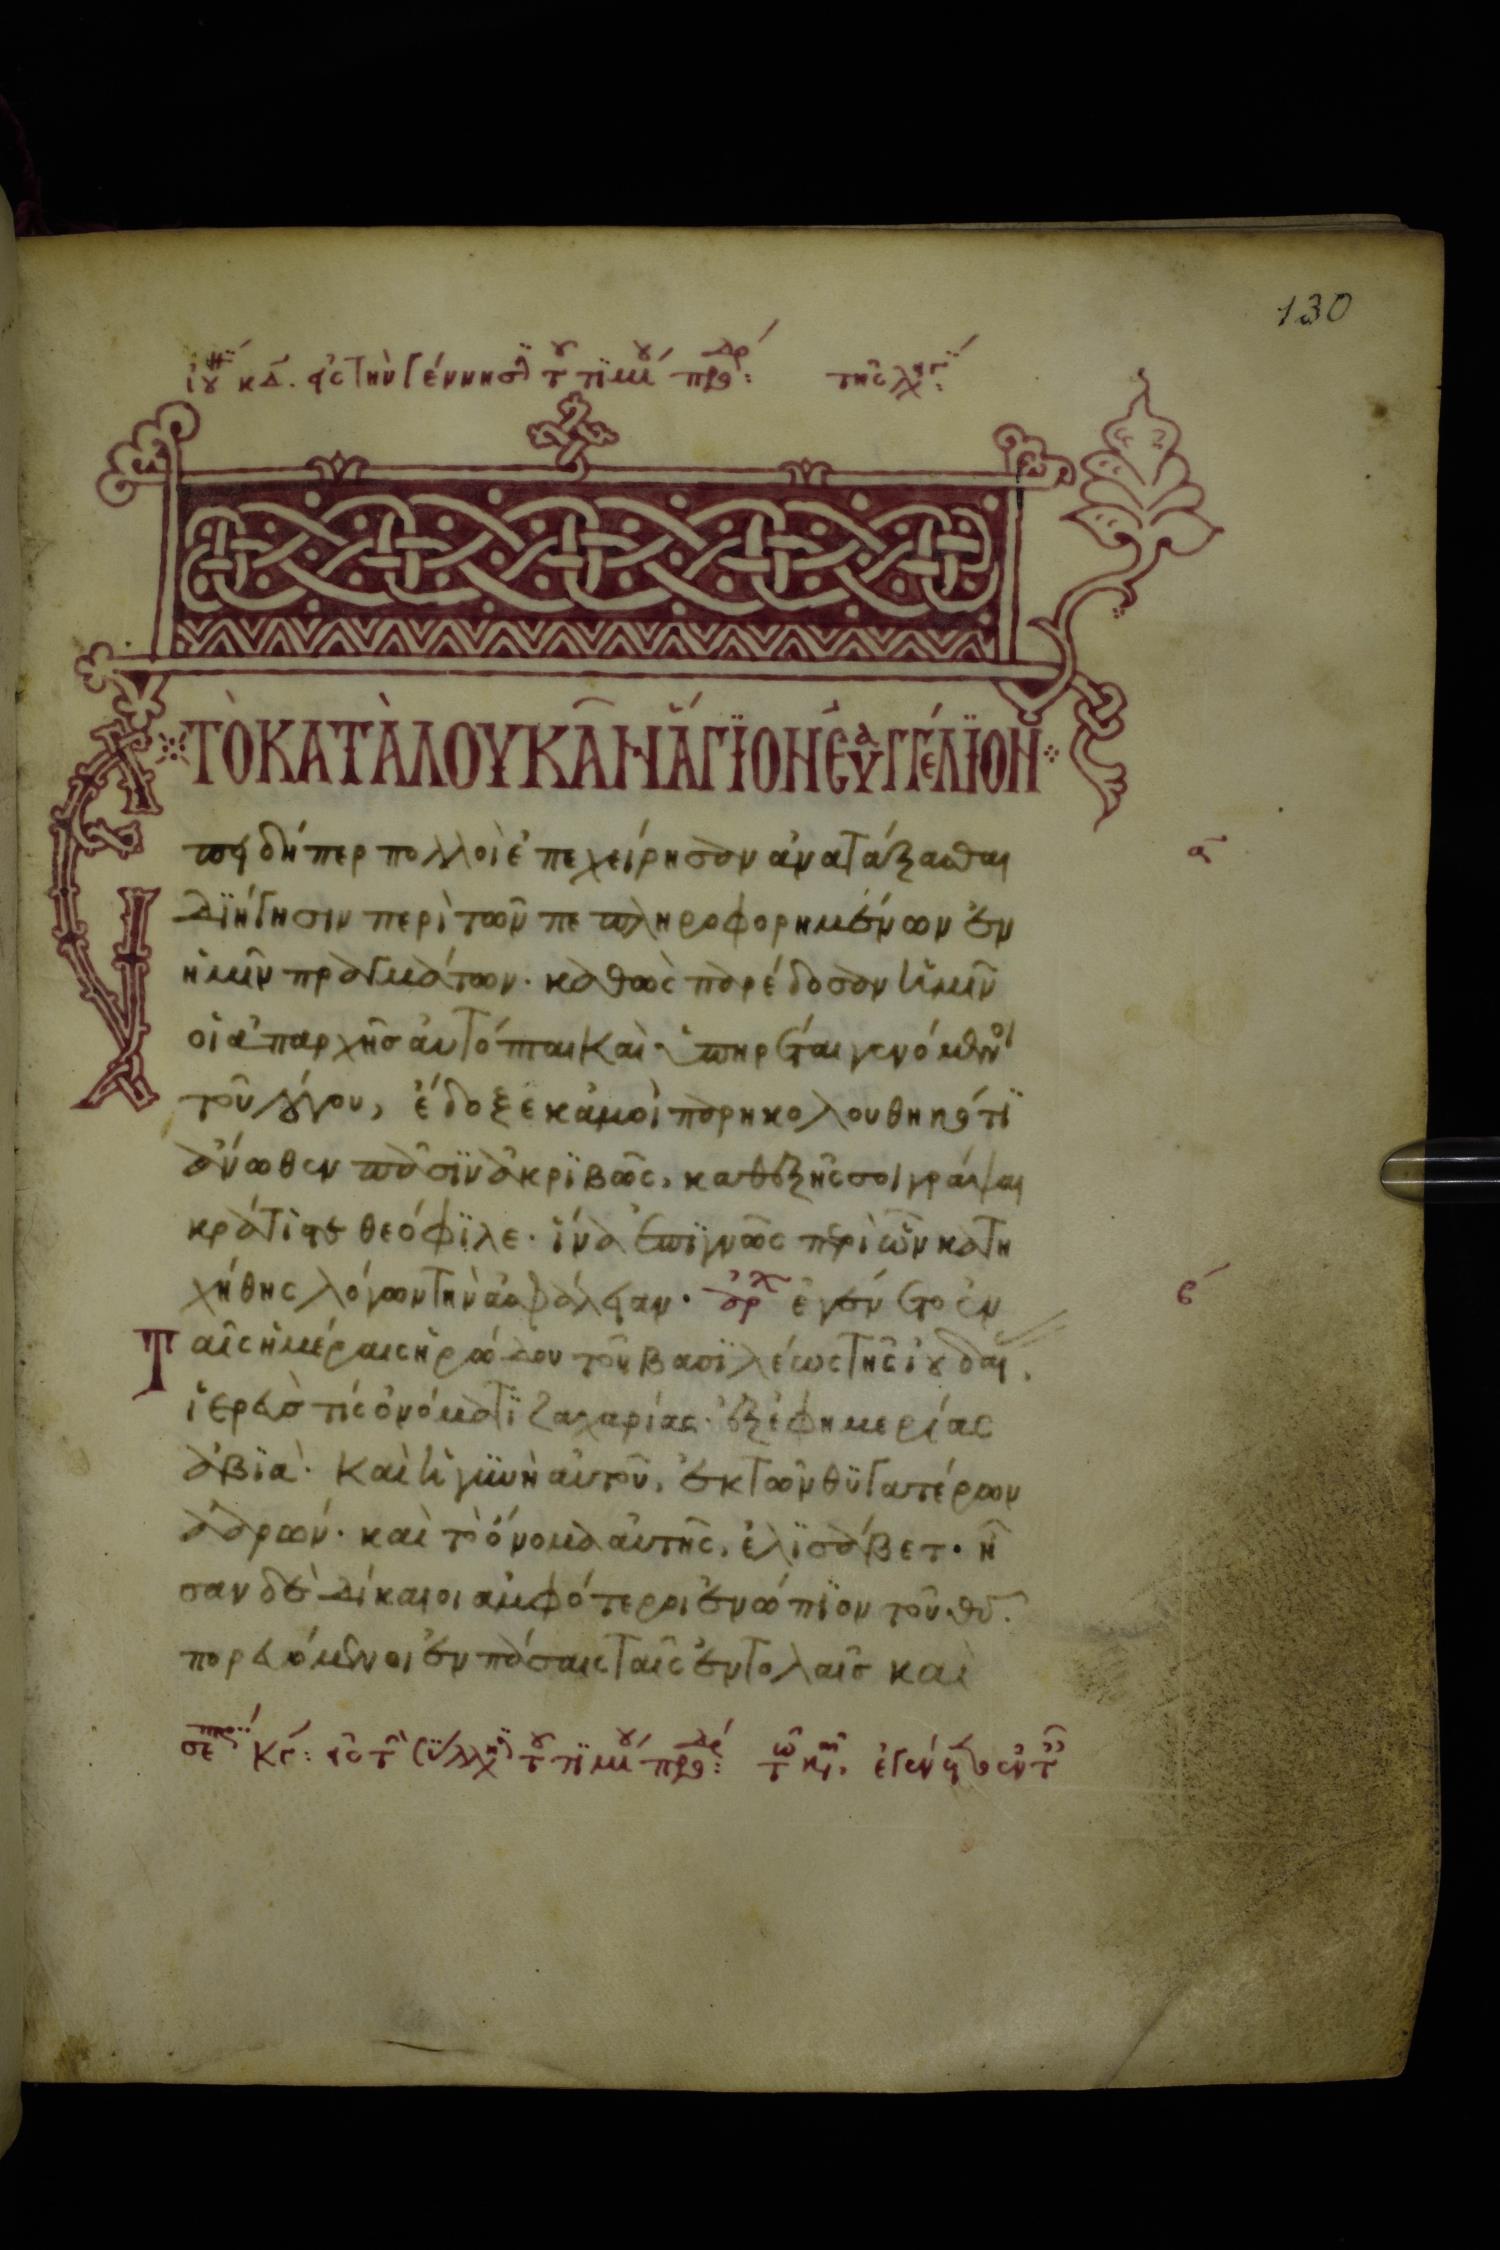 130
ἰου κδ. εἰς τὴν γέννησϊ τοῦ τϊμ πρδρ: τῆς λχ:
ΤῸ ΚΑΤᾺ ΛΟΥΚΑ͂Ν ἍΓΪΟΝ ἘΥΑΓΓΈΛΪΟΝ
Ἐπειδήπερ πολλοὶ ἐπεχείρησαν ἀνατάξασθαι α
διήγησιν περὶ τῶν πεπληροφορημένων ἐν
ἡμῖν πραγμάτων· καθὼς παρέδοσαν ἡμῖν
οἱ ἀπαρχῆς αὐτόπται καὶ ὑπηρέται γενόμενοι
τοῦ λόγου, ἔδοξε κἀμοὶ παρηκολουθηκότϊ
ἄνωθεν πᾶσϊν ἀκρϊβῶς, καθεξῆς σοι γράψαι
κράτιστε θεόφϊλε· ἵνα ἐπϊγνῶς περὶ ὧν κατη
χήθης λόγων τὴν ἀσφάλειαν· ἀρχ ἐγένετο ἐν
ταῖς ἡμέραις ἡρώδου τοῦ βασϊλέως τῆς ἰουδαί,
ἱερεύς τις ὀνόματϊ ζαχαρίας· ἐξ ἐφημερίας
ἀβϊά· καὶ ἡ γϋνὴ αὐτοῦ, ἐκ τῶν θϋγατέρων
ἀαρών· καὶ τὸ ὄνομα αὐτῆς, ἐλϊσάβετ· ἦ
σαν δὲ δίκαιοι ἀμφότεροι ἐνώπϊον τοῦ θυ·
πορευόμενοι ἐν πάσαις ταῖς ἐντολαῖς καὶ
σεπ κγ: εἰς τ σϋλλη τοῦ τϊμ πρδρ: τω κ, ἐγέν ἐν τ